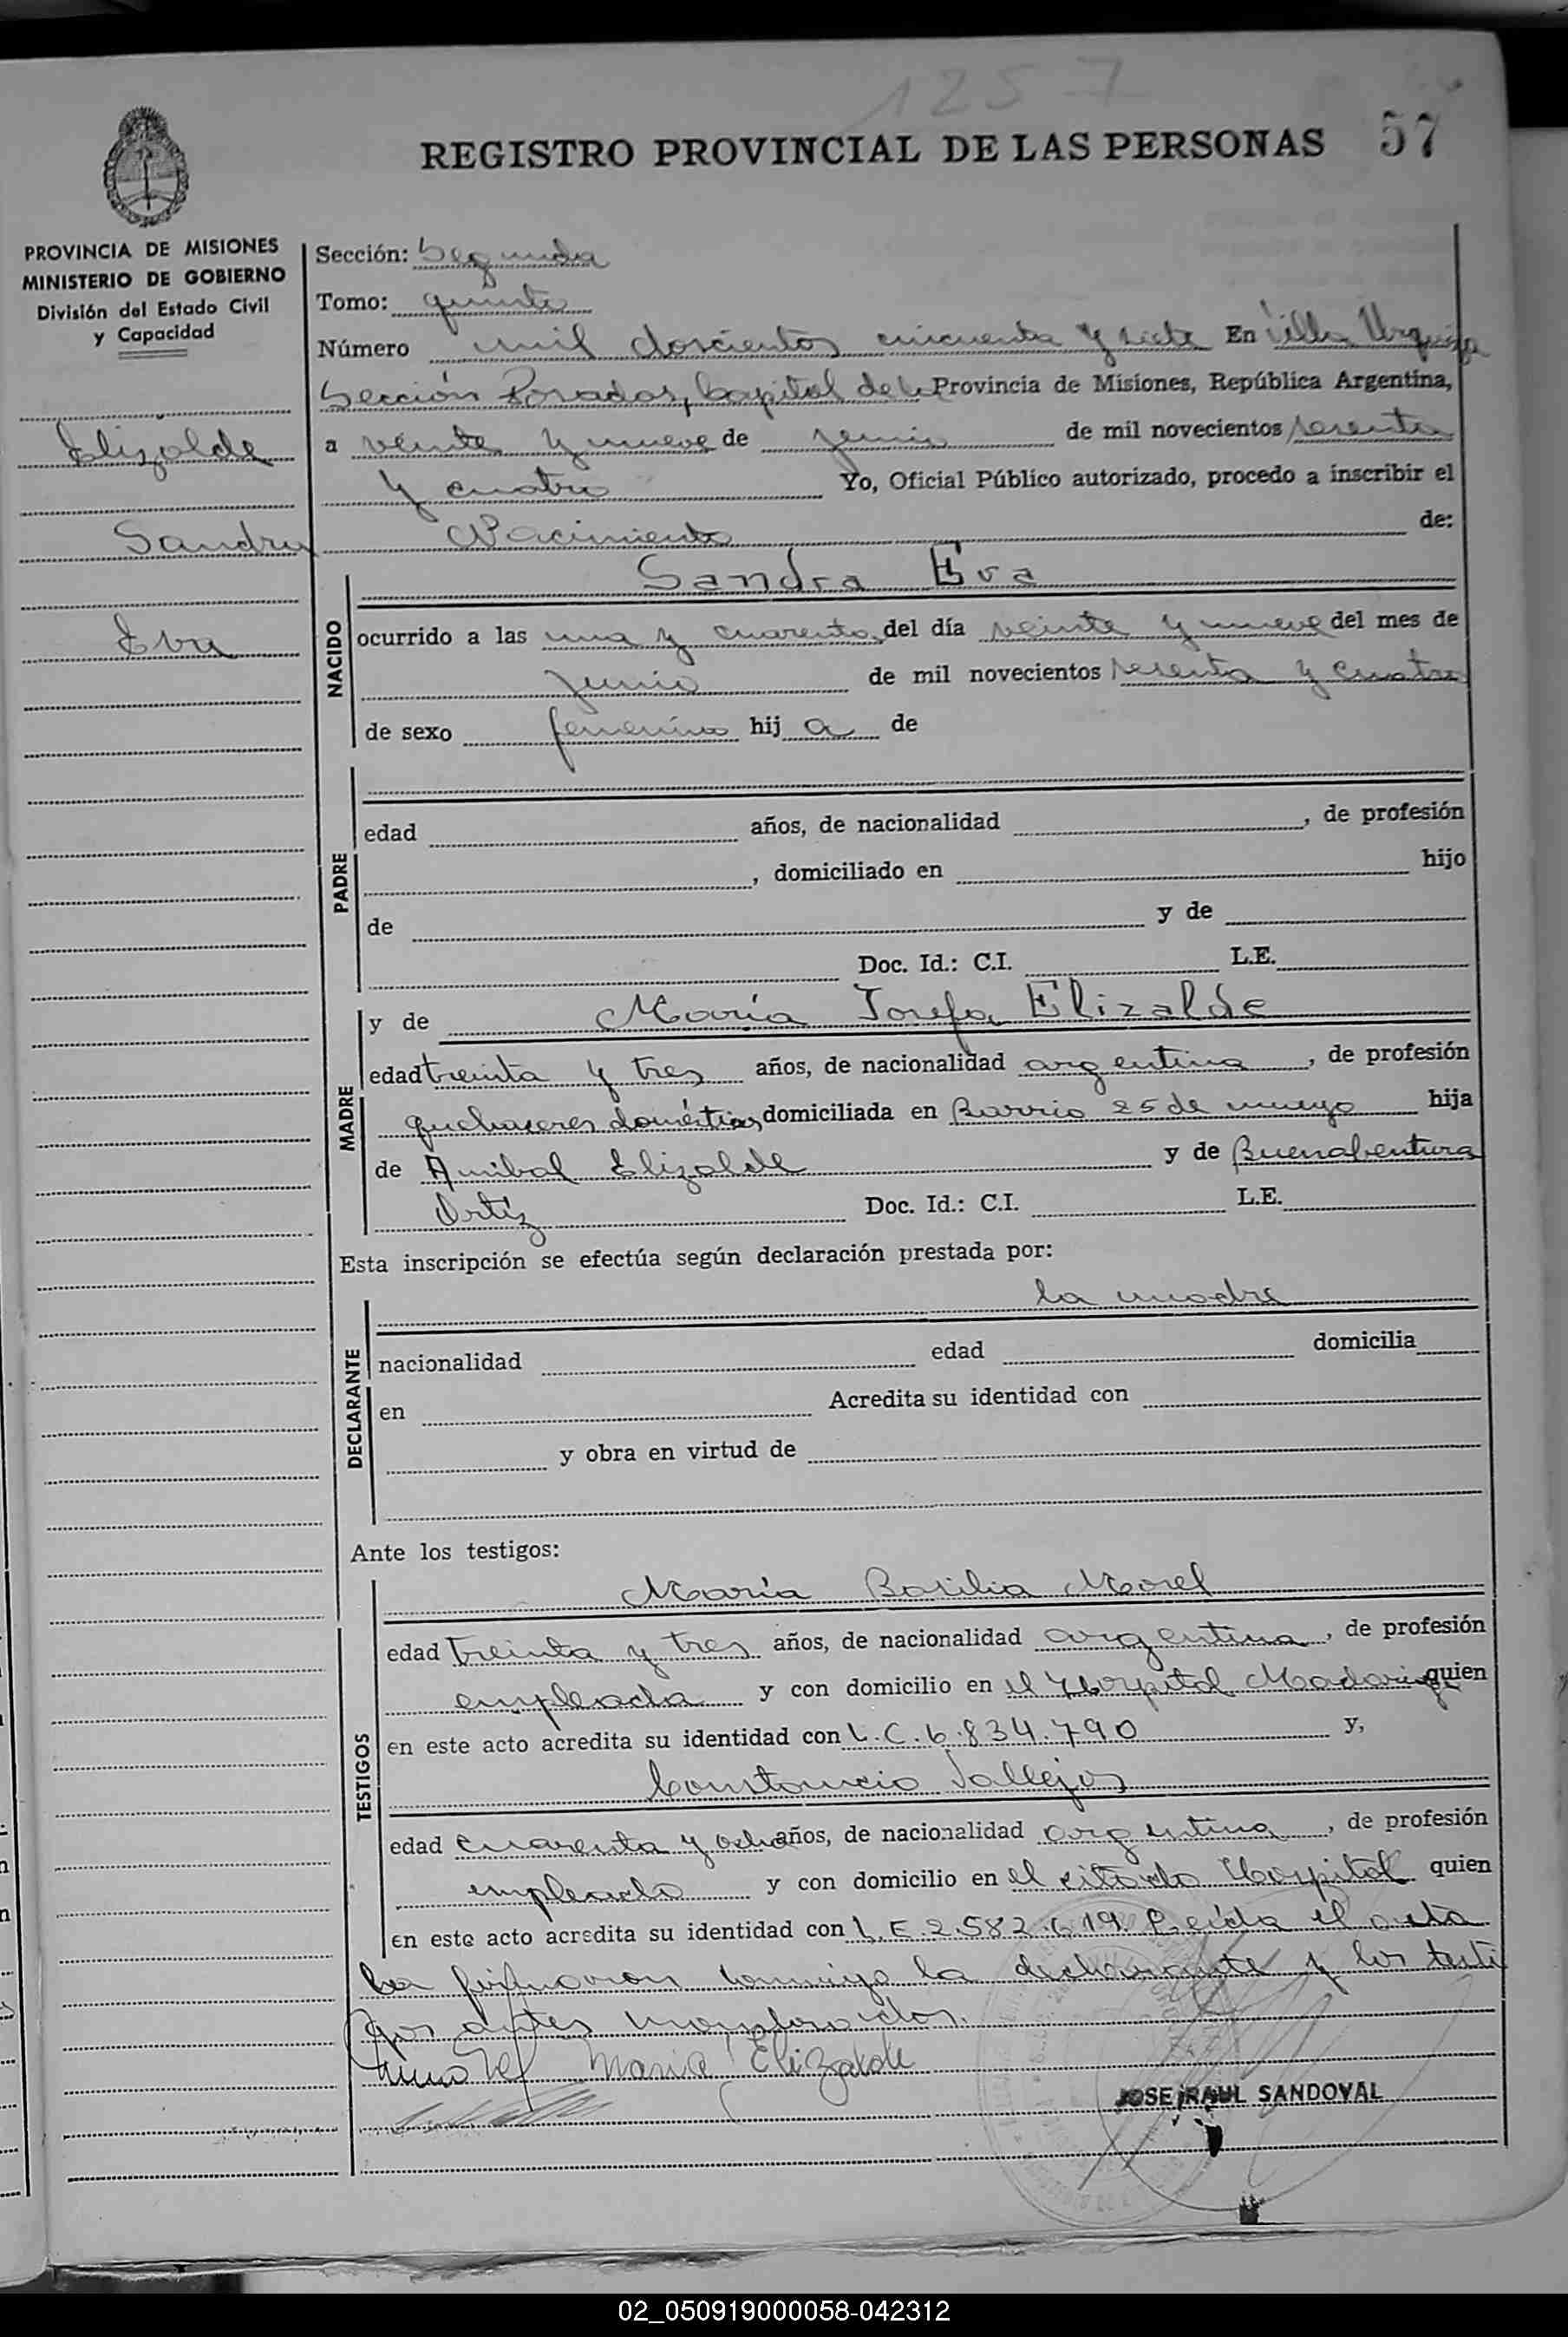 1257
REGISTRO PROVINCIAL DE LAS PERSONAS 57
PROVINCIA DE MISIONES
MINISTERIO DE GOBIERNO
División del Estado Civil
y Capacidad
Elizalde
Sandra
Eva
Sección: Segunda
Tomo: quinto
Número mil doscientos cincuenta y siete En Villa Urquiza
Sección Posadas, Capital de la Provincia de Misiones, República Argentina,
a veinte y nueve de junio de mil novecientos sesenta
y cuatro Yo, Oficial Público autorizado, procedo a inscribir el
Nacimiento de:
NACIDO
Sandra Eva
ocurrido a las una y cuarenta del día veinte y nueve del mes de
junio de mil novecientos sesenta y cuatro
de sexo femenino hij a de
PADRE
edad años, de nacionalidad , de profesión
, domiciliado en hijo
de y de
Doc. Id.: C.I. L.E.
MADRE
y de María Josefa Elizalde
edad treinta y tres años, de nacionalidad argentina , de profesión
quehaceres domésticos, domiciliada en Barrio 25 de mayo hija
de Anibal Elizalde y de Buenabentura
Ortíz Doc. Id.: C.I. L.E.
Esta inscripción se efectúa según declaración prestada por:
DECLARANTE
la madre
nacionalidad edad domicilia
en Acredita su identidad con
y obra en virtud de
Ante los testigos:
TESTIGOS
María Basilia Morel
edad treinta y tres años, de nacionalidad argentina , de profesión
empleada y con domicilio en el Hospital Madariaga quien
en este acto acredita su identidad con L.C. 6.834.790 y,
Constancio Vallejos
edad cuarenta y ocho años, de nacionalidad argentina , de profesión
empleado y con domicilio en el citado Hospital quien
en este acto acredita su identidad con L.E 2.582.619. Leída el acta
la firmaron conmigo la declarante y los testi
gos antes nombrados.
Maria Elizalde
JOSE RAUL SANDOVAL
02_050919000058-042312